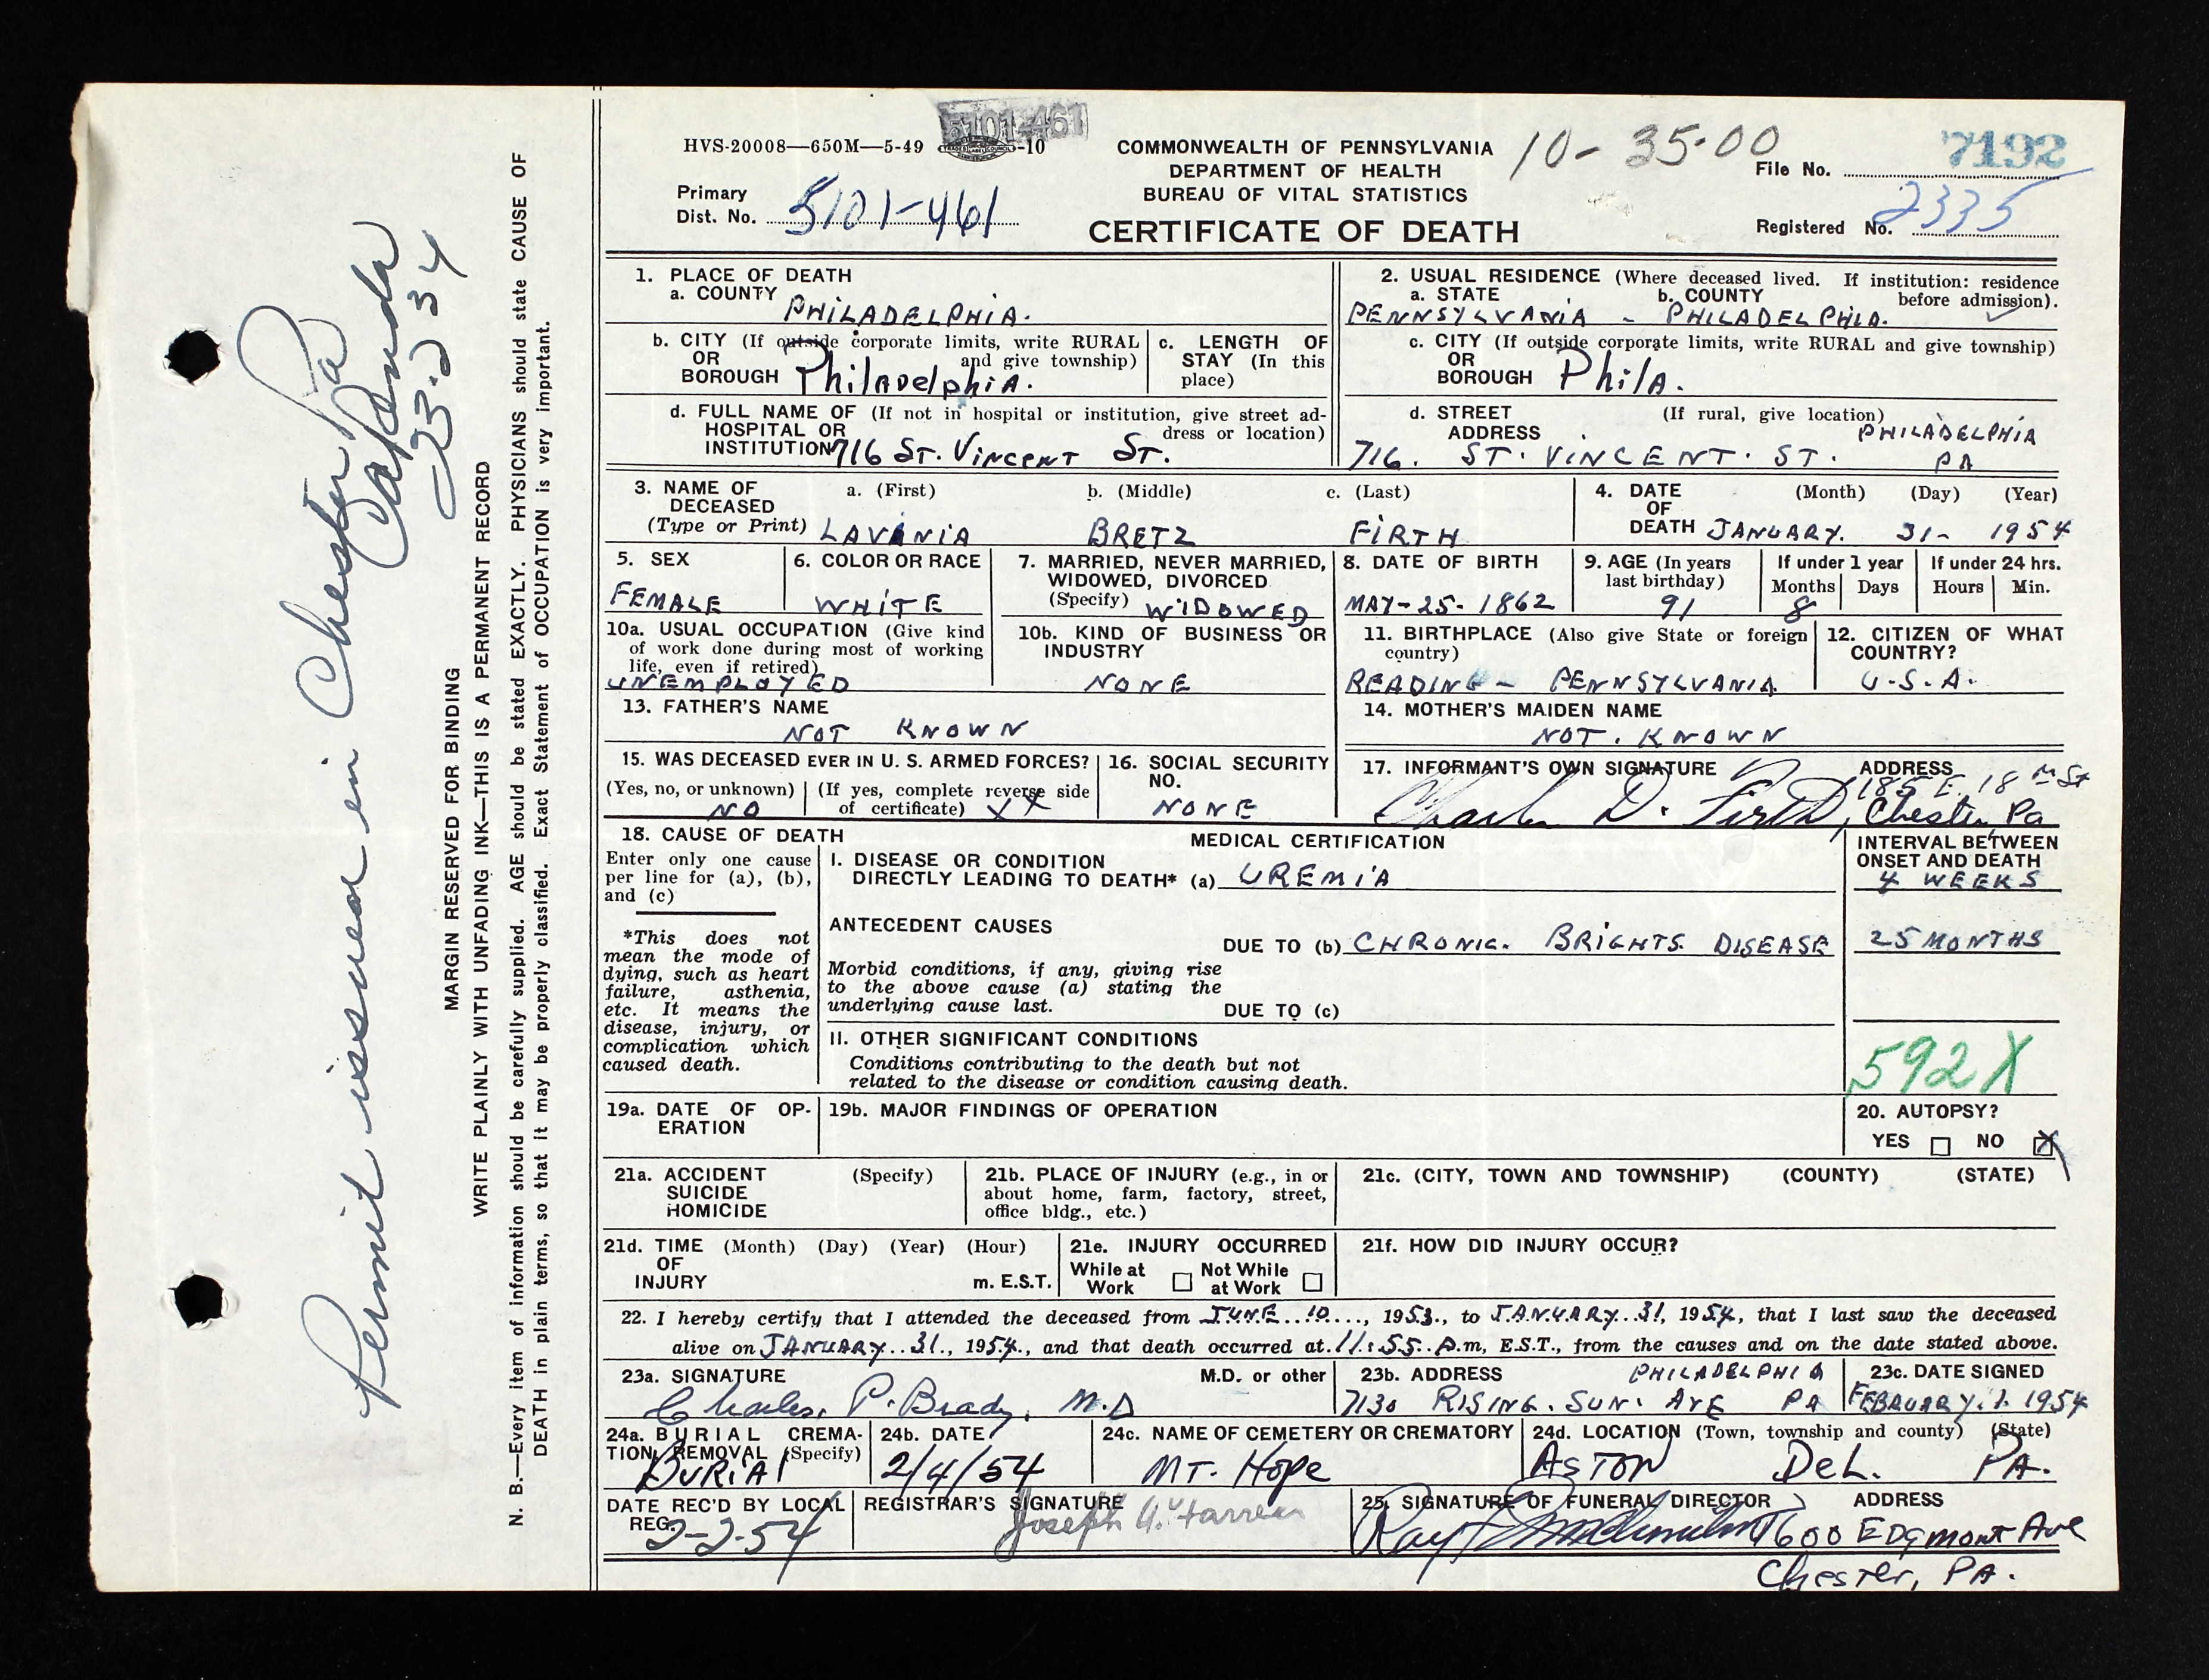 HVS-20008—650M—5-49 -10
5101-461
COMMONWEALTH OF PENNSYLVANIA
DEPARTMENT OF HEALTH
BUREAU OF VITAL STATISTICS
CERTIFICATE OF DEATH
10-35-00
Primary
Dist. No. 5101-461
File No. 7192
Registered No. 2335
1. PLACE OF DEATH
a. COUNTY PHILADELPHIA.
b. CITY (If outside corporate limits, write RURAL
OR and give township)
BOROUGH Philadelphia.
c. LENGTH OF
STAY (In this
place)
d. FULL NAME OF (If not in hospital or institution, give street ad-
HOSPITAL OR dress or location)
INSTITUTION 716 St. Vincent St.
2. USUAL RESIDENCE (Where deceased lived. If institution: residence
a. STATE b. COUNTY before admission).
PENNSYLVANIA - PHILADELPHIA.
c. CITY (If outside corporate limits, write RURAL and give township)
OR
BOROUGH Phila.
d. STREET (If rural, give location)
ADDRESS PHILADELPHIA
716. ST. VINCENT. ST. PA
3. NAME OF a. (First) b. (Middle) c. (Last)
DECEASED
(Type or Print) LAVINIA BRETZ FIRTH
4. DATE (Month) (Day) (Year)
OF
DEATH JANUARY. 31- 1954
5. SEX
FEMALE
6. COLOR OR RACE
WHITE
7. MARRIED, NEVER MARRIED,
WIDOWED, DIVORCED
(Specify) WIDOWED
8. DATE OF BIRTH
MAY-25-1862
9. AGE (In years
last birthday)
91
If under 1 year
Months Days
8
If under 24 hrs.
Hours Min.
10a. USUAL OCCUPATION (Give kind
of work done during most of working
life, even if retired)
UNEMPLOYED
10b. KIND OF BUSINESS OR
INDUSTRY
NONE
11. BIRTHPLACE (Also give State or foreign
country)
READING - PENNSYLVANIA
12. CITIZEN OF WHAT
COUNTRY?
U.S.A.
13. FATHER'S NAME
NOT KNOWN
14. MOTHER'S MAIDEN NAME
NOT. KNOWN
15. WAS DECEASED EVER IN U. S. ARMED FORCES?
(Yes, no, or unknown) (If yes, complete reverse side
NO of certificate) XX
16. SOCIAL SECURITY
NO.
NONE
17. INFORMANT'S OWN SIGNATURE ADDRESS
Charles D. Firth, 185 E. 18th St
Chester, Pa
18. CAUSE OF DEATH
Enter only one cause
per line for (a), (b),
and (c)
*This does not
mean the mode of
dying, such as heart
failure, asthenia,
etc. It means the
disease, injury, or
complication which
caused death.
MEDICAL CERTIFICATION
I. DISEASE OR CONDITION
DIRECTLY LEADING TO DEATH* (a) UREMIA
ANTECEDENT CAUSES
DUE TO (b) CHRONIC. BRIGHTS DISEASE
Morbid conditions, if any, giving rise
to the above cause (a) stating the
underlying cause last.
DUE TO (c)
II. OTHER SIGNIFICANT CONDITIONS
Conditions contributing to the death but not
related to the disease or condition causing death.
INTERVAL BETWEEN
ONSET AND DEATH
4 WEEKS
25 MONTHS
592X
19a. DATE OF OP-
ERATION
19b. MAJOR FINDINGS OF OPERATION
20. AUTOPSY?
YES NO X
21a. ACCIDENT (Specify)
SUICIDE
HOMICIDE
21b. PLACE OF INJURY (e.g., in or
about home, farm, factory, street,
office bldg., etc.)
21c. (CITY, TOWN AND TOWNSHIP) (COUNTY) (STATE)
21d. TIME (Month) (Day) (Year) (Hour)
OF
INJURY m. E.S.T.
21e. INJURY OCCURRED
While at Not While
Work at Work
21f. HOW DID INJURY OCCUR?
22. I hereby certify that I attended the deceased from JUNE 10, 1953, to JANUARY 31, 1954, that I last saw the deceased
alive on JANUARY 31, 1954, and that death occurred at 11:55 P.m, E.S.T., from the causes and on the date stated above.
23a. SIGNATURE M.D. or other
Charles. P. Brady, M.D
23b. ADDRESS PHILADELPHIA
7130 RISING. SUN. AVE PA
23c. DATE SIGNED
FEBRUARY. 1. 1954
24a. BURIAL CREMA-
TION, REMOVAL (Specify)
Burial
24b. DATE
2/4/54
24c. NAME OF CEMETERY OR CREMATORY
MT. Hope
24d. LOCATION (Town, township and county) (State)
Aston Del. PA.
DATE REC'D BY LOCAL
REG.
2-2-54
REGISTRAR'S SIGNATURE
Joseph A. Farrell
25. SIGNATURE OF FUNERAL DIRECTOR ADDRESS
Ray 600 Edgmont Ave
Chester, PA.
N. B.—Every item of information should be carefully supplied. AGE should be stated EXACTLY. PHYSICIANS should state CAUSE OF
DEATH in plain terms, so that it may be properly classified. Exact Statement of OCCUPATION is very important.
WRITE PLAINLY WITH UNFADING INK—THIS IS A PERMANENT RECORD
MARGIN RESERVED FOR BINDING
Permit issued in Chester Pa
23-234